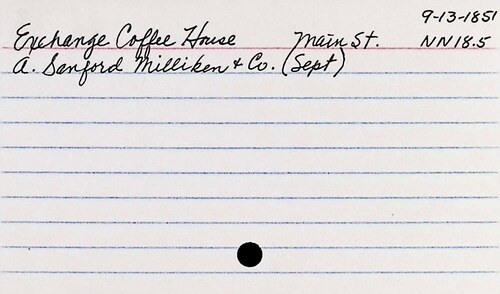 9-13-1851
Exchange Coffee House Main St. NN18.5
A. Sanford Milliken & Co. (Sept)